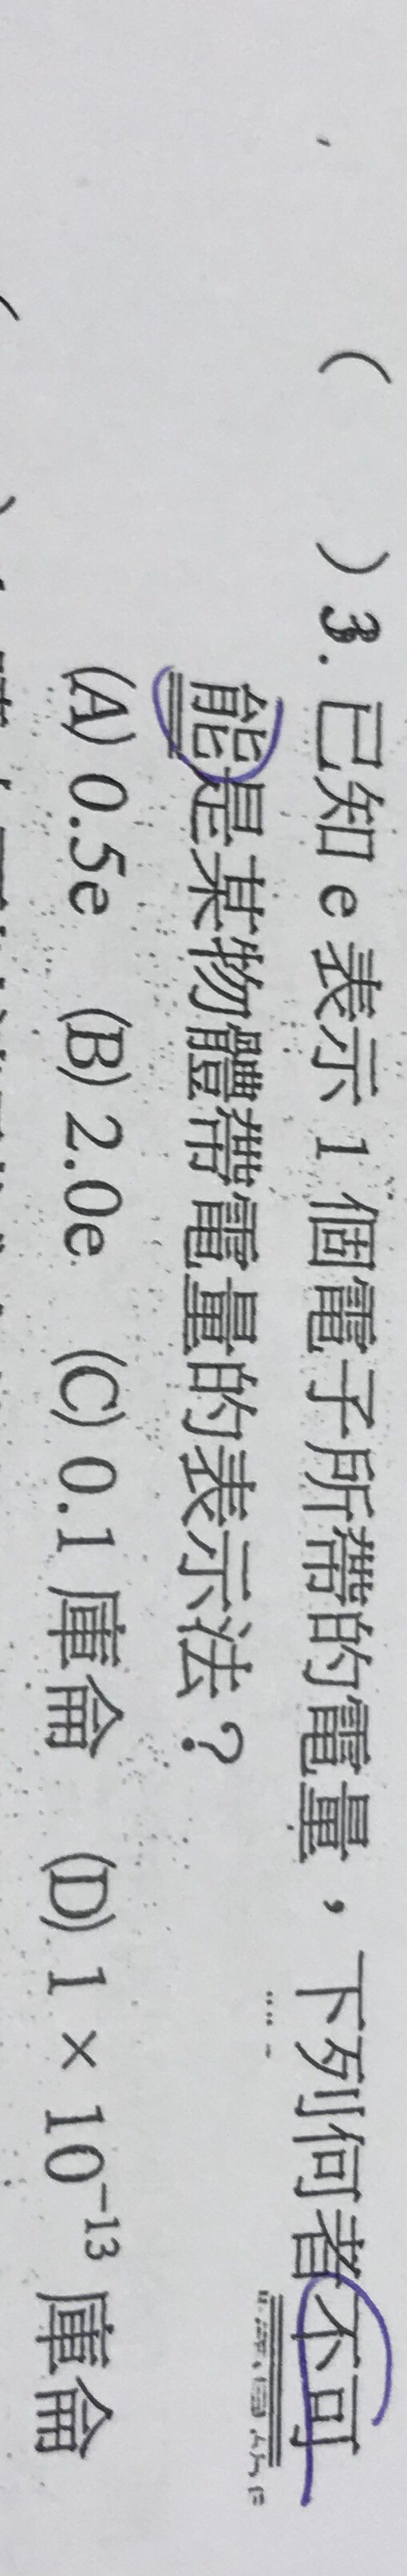 (　　) 3. 已知 e 表示 1 個電子所帶的電量，下列何者不可
能是某物體帶電量的表示法？
(A) 0.5e　(B) 2.0e　(C) 0.1 庫侖　(D) 1 × 10⁻¹³ 庫侖